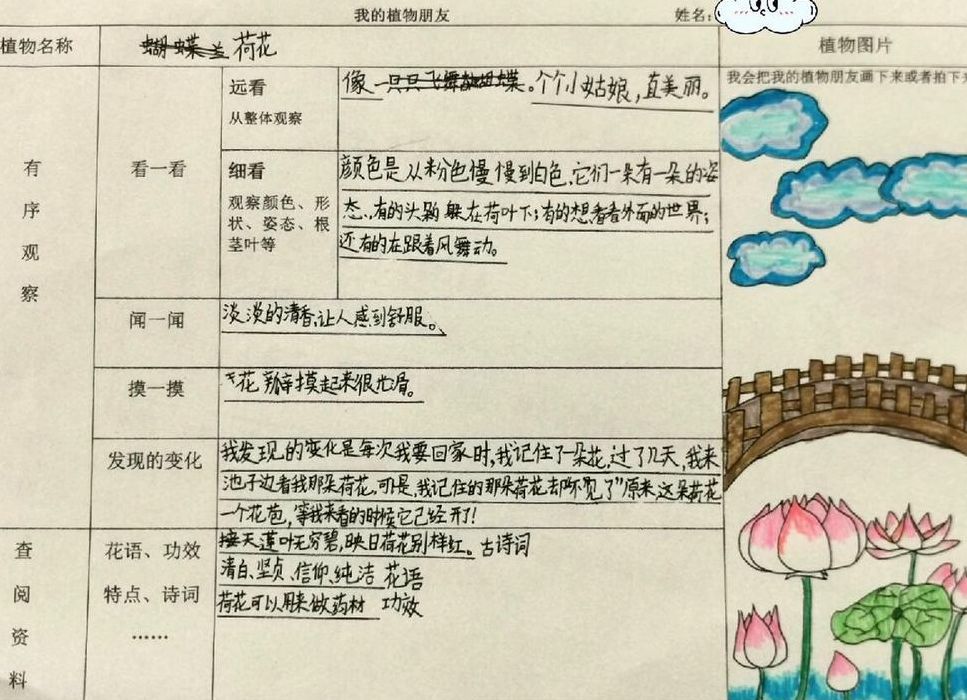 我的植物朋友
姓名:
植物名称
蝴蝶兰荷花
植物图片
我会把我的植物朋友画下来或者拍下来
有序观察
看一看
远看
从整体观察
像一只只飞舞的蝴蝶。个个小姑娘,真美丽。
细看
观察颜色、形
状、姿态、根
茎叶等
颜色是从粉色慢慢到白色,它们一朵有一朵的姿
态,有的头躲在荷叶下;有的想看看外面的世界;
还有的在跟着风舞动。
闻一闻
淡淡的清香,让人感到舒服。
摸一摸
花瓣摸起来很光滑。
发现的变化
我发现的变化是每次我要回家时,我记住了一朵花,过了几天,我来
池子边看我那朵荷花,可是,我记住的那朵荷花却“不见了”原来,这朵荷花
一个花苞,等我来看的时候它已经开了!
查阅资料
花语、功效
特点、诗词
……
接天莲叶无穷碧,映日荷花别样红。古诗词
清白、坚贞、信仰、纯洁 花语
荷花可以用来做药材 功效